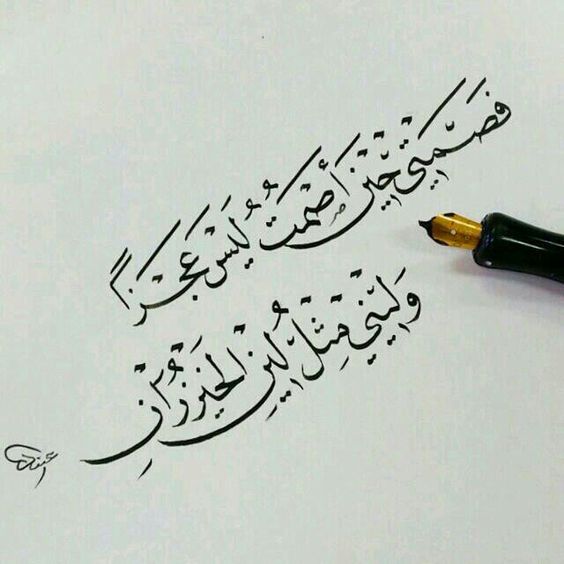 فَصَمْتِي حِيْنَ أَصْمُتُ لَيْسَ عَجْزًا
وَلِيْنِي مِثْلُ لِيْنِ الْخَيْزُرَانِ